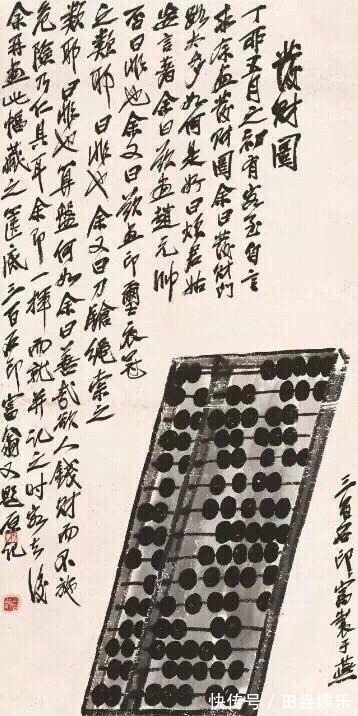 發財圖
丁卯五月之初有客至自言
求余畫發財圖余曰發財門
路太多如何是好曰煩君姑
妄言著余曰欲畫趙元帥
否曰非也余又曰欲畫印璽衣冠
之類耶曰非也余又曰刀鎗繩索之
類耶曰非也算盤何如余曰善哉欲人錢財而不施
危險乃仁具耳余即一揮而就并記之時客去後
余再畫此幅藏之篋底三百石印富翁又題原記
三百石印富製于燕
快传号 / 田盎娱乐